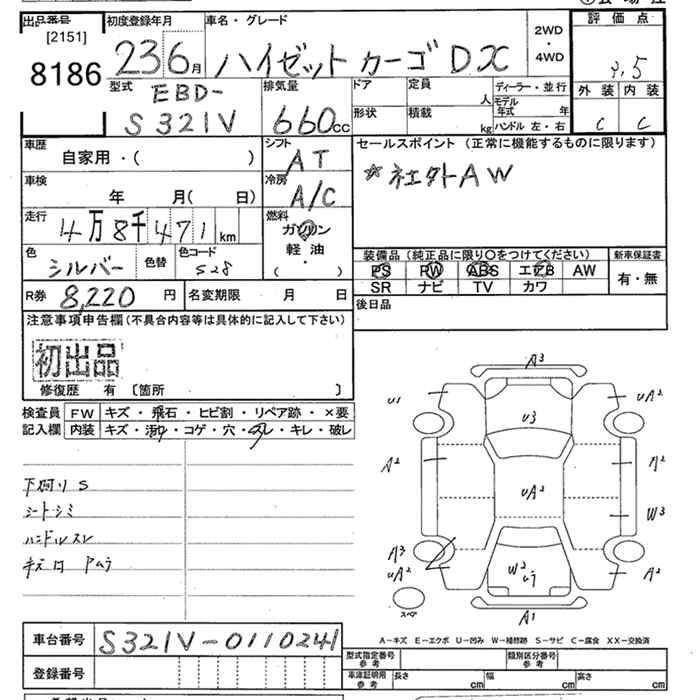 出品番号
[2151]
8186
初度登録年月
23 6月
車名・グレード
ハイゼットカーゴ DX
2WD
・
4WD
評価点
3.5
外装 内装
C C
型式
EBD-
S321V
排気量
660cc
ドア
形状
定員
人
積載
kg
ディーラー・並行
モデル年式 年
ハンドル 左・右
車歴
自家用・( )
シフト
AT
セールスポイント (正常に機能するものに限ります)
☆社外AW
車検
年 月( 日)
冷房
A/C
走行
4万8千471km
燃料
ガソリン
軽油
・
( )
色
シルバー
色替
色コード
S28
装備品 (純正品に限り○をつけてください)
新車保証書
PS PW ABS エアB AW
有・無
SR ナビ TV カワ
R券 8,220円
名変期限 月 日
後日品
注意事項申告欄(不具合内容等は具体的に記入して下さい)
初出品
修復歴 有 〔箇所 〕
検査員
記入欄
FW キズ・飛石・ヒビ割・リペア跡・×要
内装 キズ・汚れ・コゲ・穴・スレ・キレ・破レ
下廻りS
シートシミ
ハンドルスレ
A3
U1
UA2
U3
A2
A2
UA2
W3
A3
UA2
W2
U1
A2
A1
スペア
A-キズ E-エクボ U-凹み W-補修跡 S-サビ C-腐食 XX-交換済
車台番号 S321V-0110241
登録番号
型式指定番号
参考
類別区分番号
参考
車庫証明用
参考
長さ cm
幅 cm
高さ cm